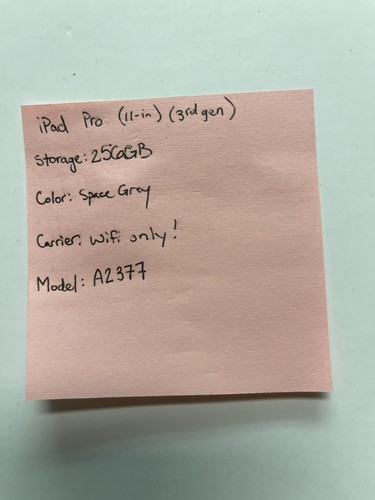 iPad Pro (11-in) (3rd gen)
Storage: 256GB
Color: Space Gray
Carrier: Wifi only!
Model: A2377